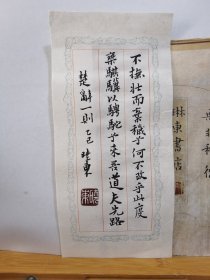 不撫壯而棄穢兮何不改乎此度
乘騏驥以騁馳兮來吾道夫先路
楚辭一則 乙巳
林東書店